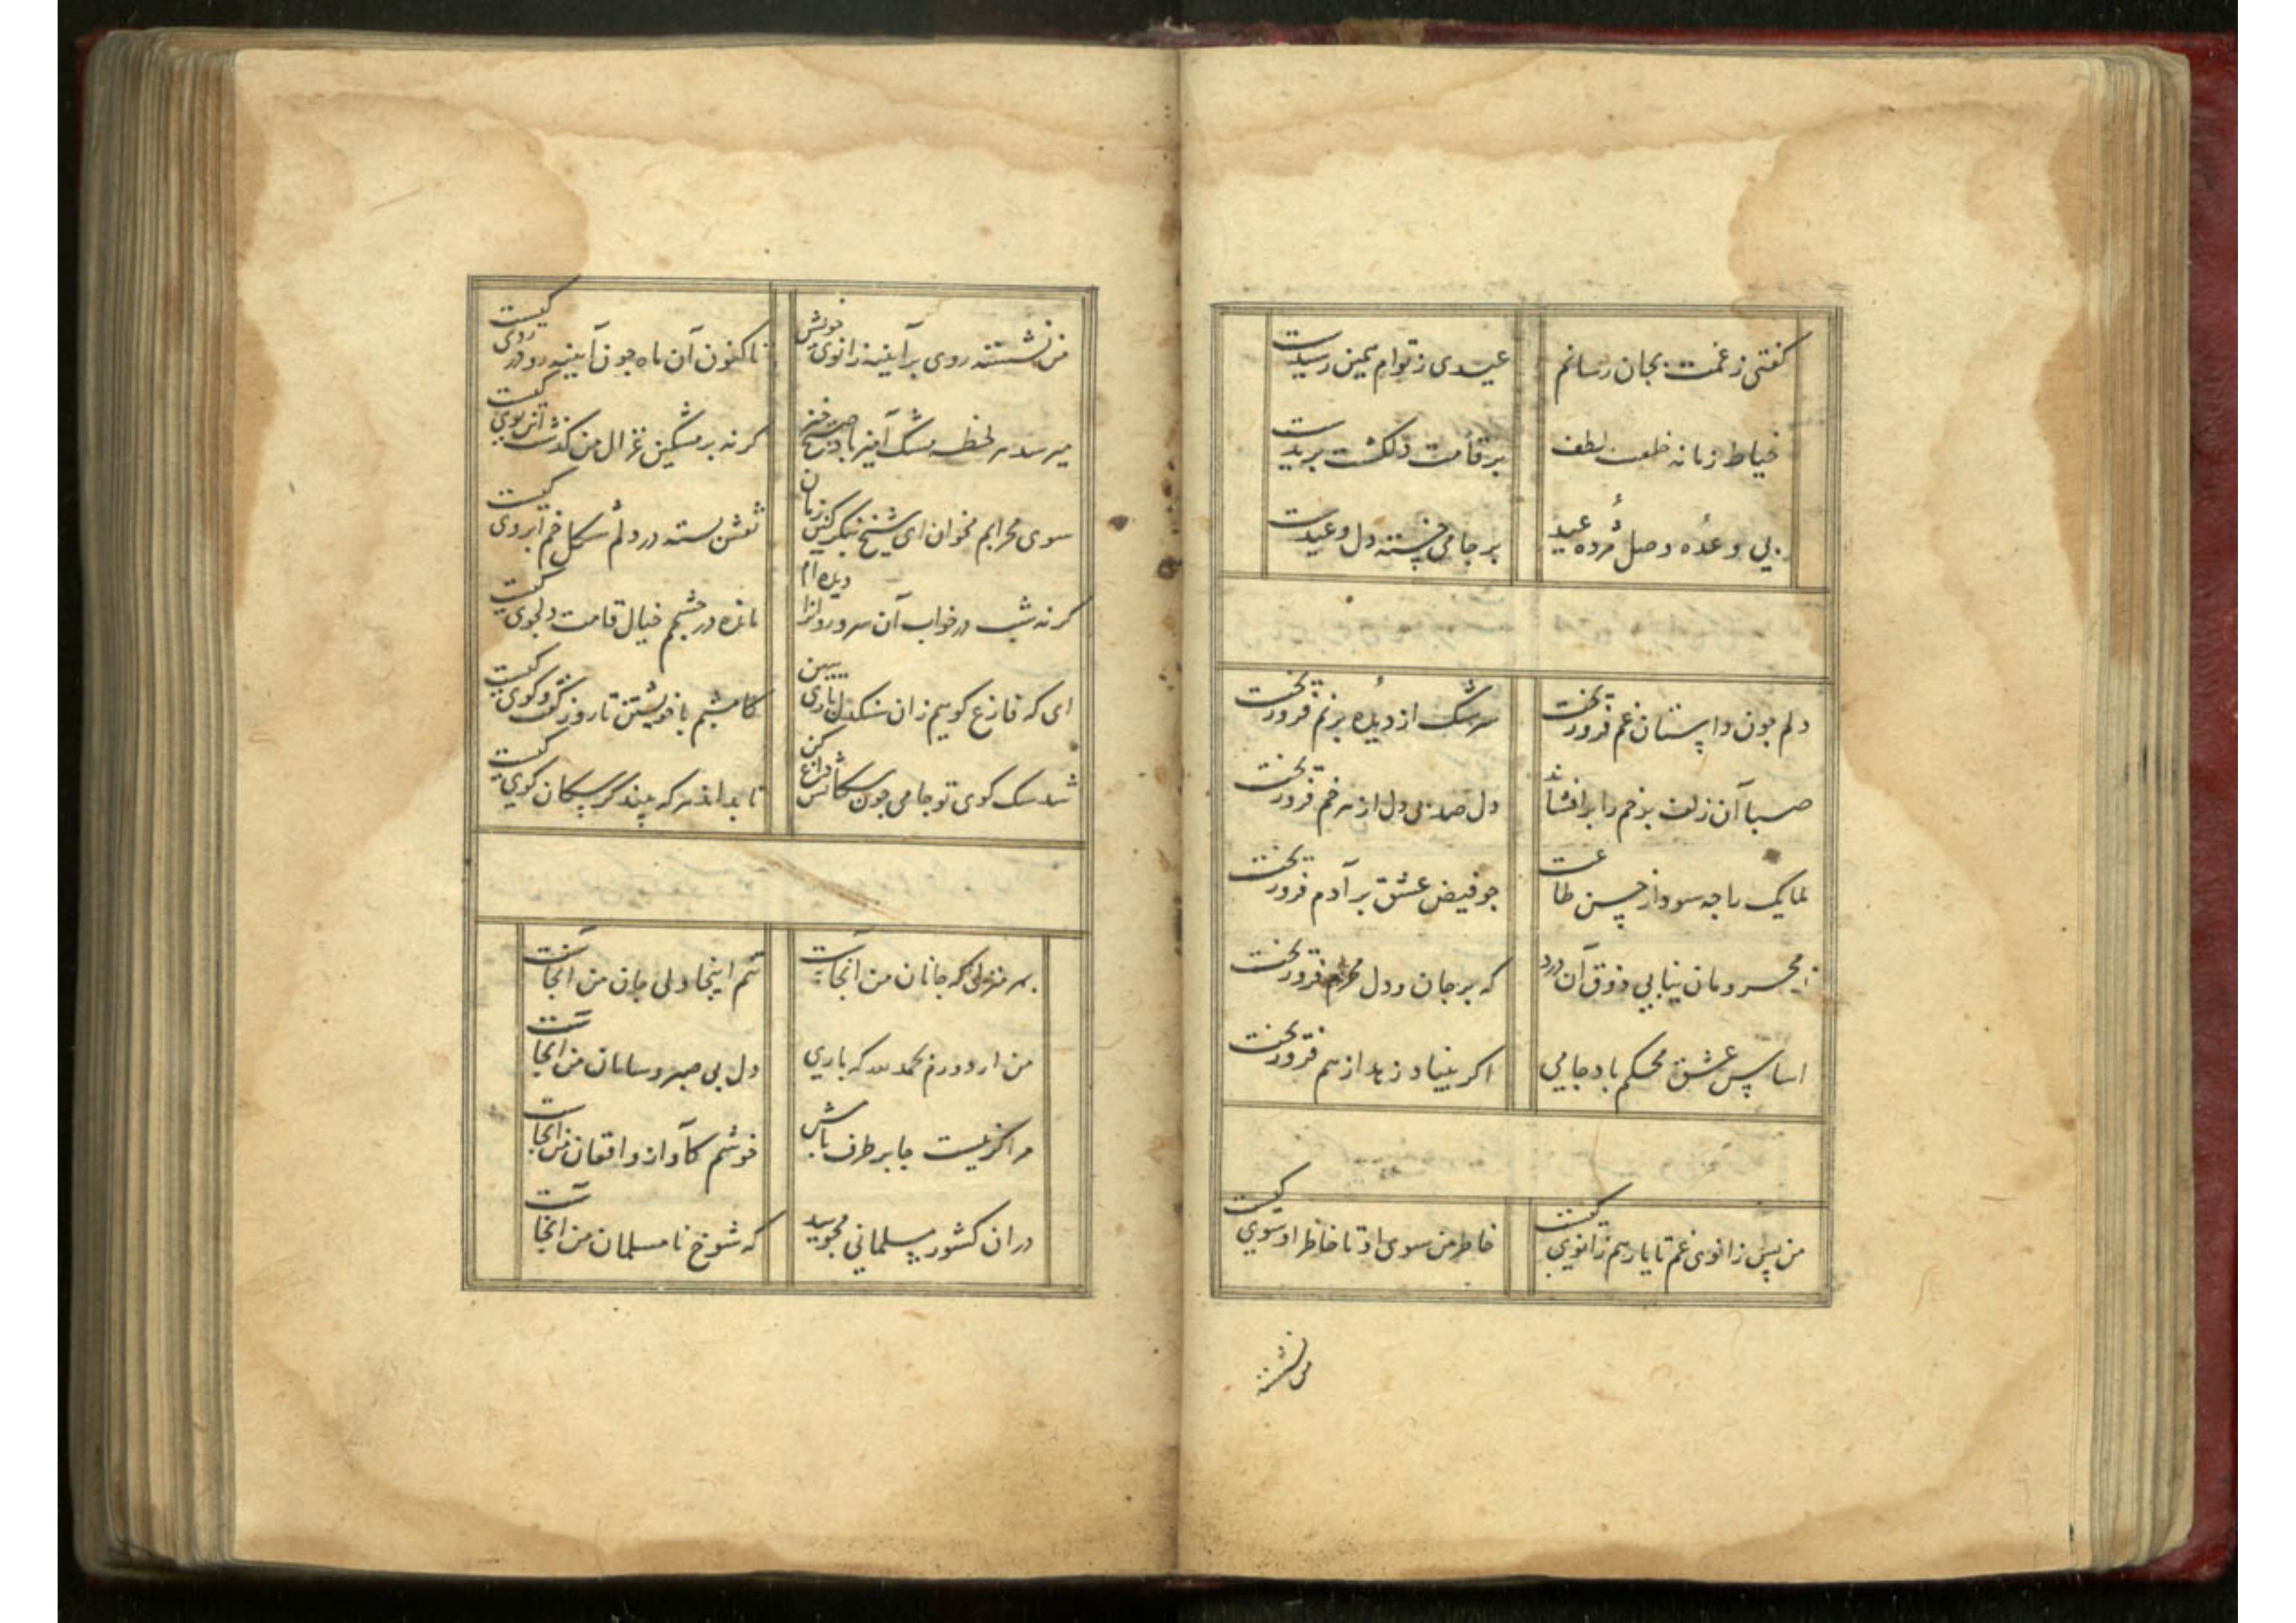 کفتی ز غمت بجان رسانم عیدی ز توام همین رسیدست
خیاط زمانه خلعت لطف بر قامت دلکشت بریدست
بی وعدهٔ وصل مژدهٔ عید بر جامی خسته دل وعیدست
دلم چون داستان غم فرو ریخت سرشک از دیدهٔ پر نم فرو ریخت
صبا آن زلف پر خم را بر افشاند دل صد بی دل از هر خم فرو ریخت
ملایک را چه سود از حسن طاعت چو فیض عشق بر آدم فرو ریخت
ز محرومان نیابی ذوق آن درد که بر جان و دل محرم فرو ریخت
اساس عشق محکم باد جامی اکر بنیاد زهد از هم فرو ریخت
من پس زانوی غم تا یار هم زانوی کیست خاطر من سوی او تا خاطر او سوی کیست
من نشسته
من نشسته روی بر آیینه زانوی خویش تا کنون آن ماه چون آیینه رو در روی کیست
میرسد هر لحظه مشک آمیز باد صبح خیز کر نه بر مشکین غزال من کذشت این بوی کیست
سوی محرابم مخوان ای شیخ بنکر کین زمان نقش بسته در دلم شکل خم ابروی کیست
کر نه شب در خواب آن سرو روانرا دیده ام مانده در چشمم خیال قامت دلجوی کیست
ای که فارغ کوییم زان سنکدل باری ببین کامشبم با خویشتن تا روز کفت و کوی کیست
شد سک کوی تو جامی چون سکانش داغ کن تا بداند هر که بیند کز سکان کوی کیست
بهر منزل که جانان من آنجاست تنم اینجا ولی جان من آنجاست
من ار دورم بحمد الله که باری دل بی صبر و سامان من آنجاست
مرا کر نیست جا بر طرف بامش خوشم کآواز و افغان من آنجاست
در ان کشور مسلمانی مجویید که شوخ نا مسلمان من آنجاست